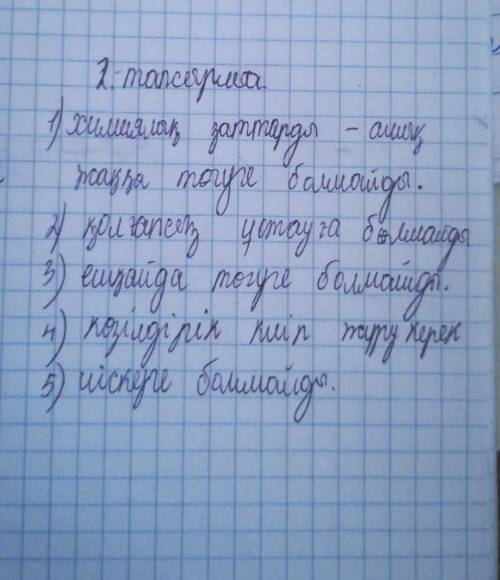 2-тапсырма.
1) химиялық заттарды - ашық
жаққа төгуге болмайды.
2) қолғапсыз ұстауға болмайды
3) ешқайда төгуге болмайды.
4) көзілдірік киіп жүру керек
5) иіскеуге болмайды.